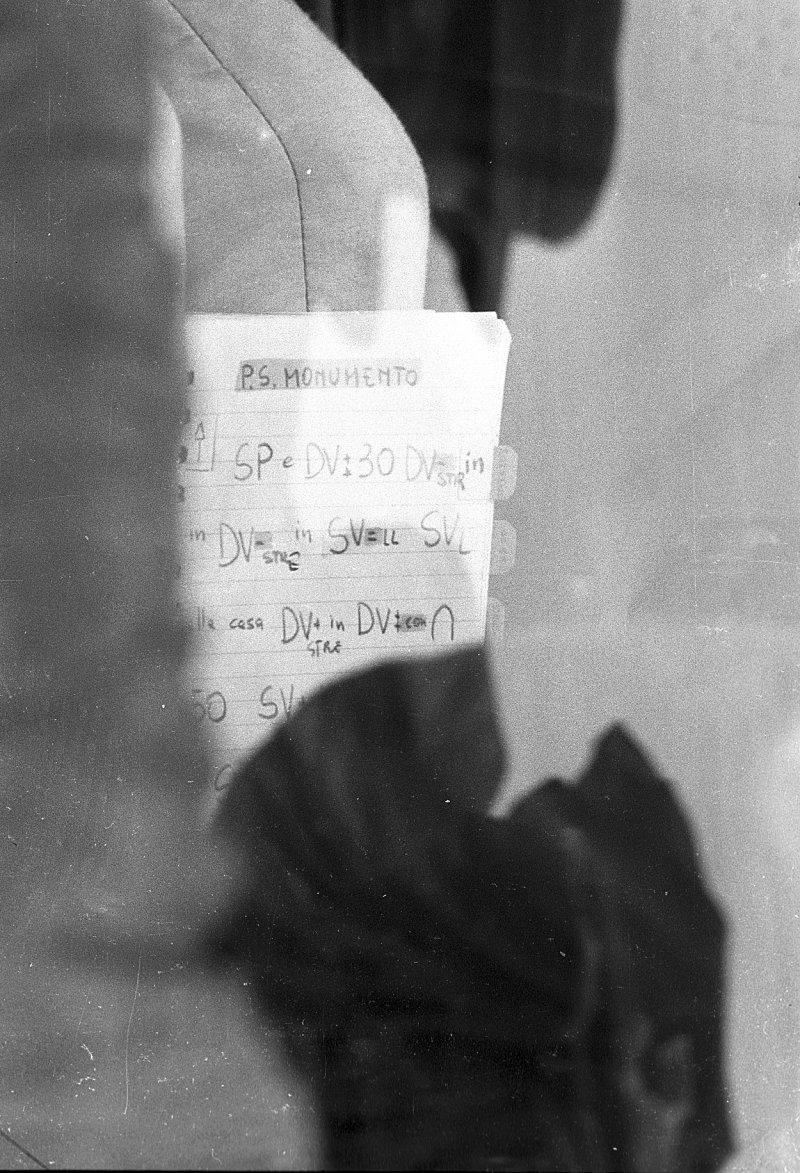 P.S. MONUMENTO
SP e DV±30 DV=STR in
in DV=STRE in SV=LL SVL
lla casa DV+ STRE in DV±con ∩
50 SV